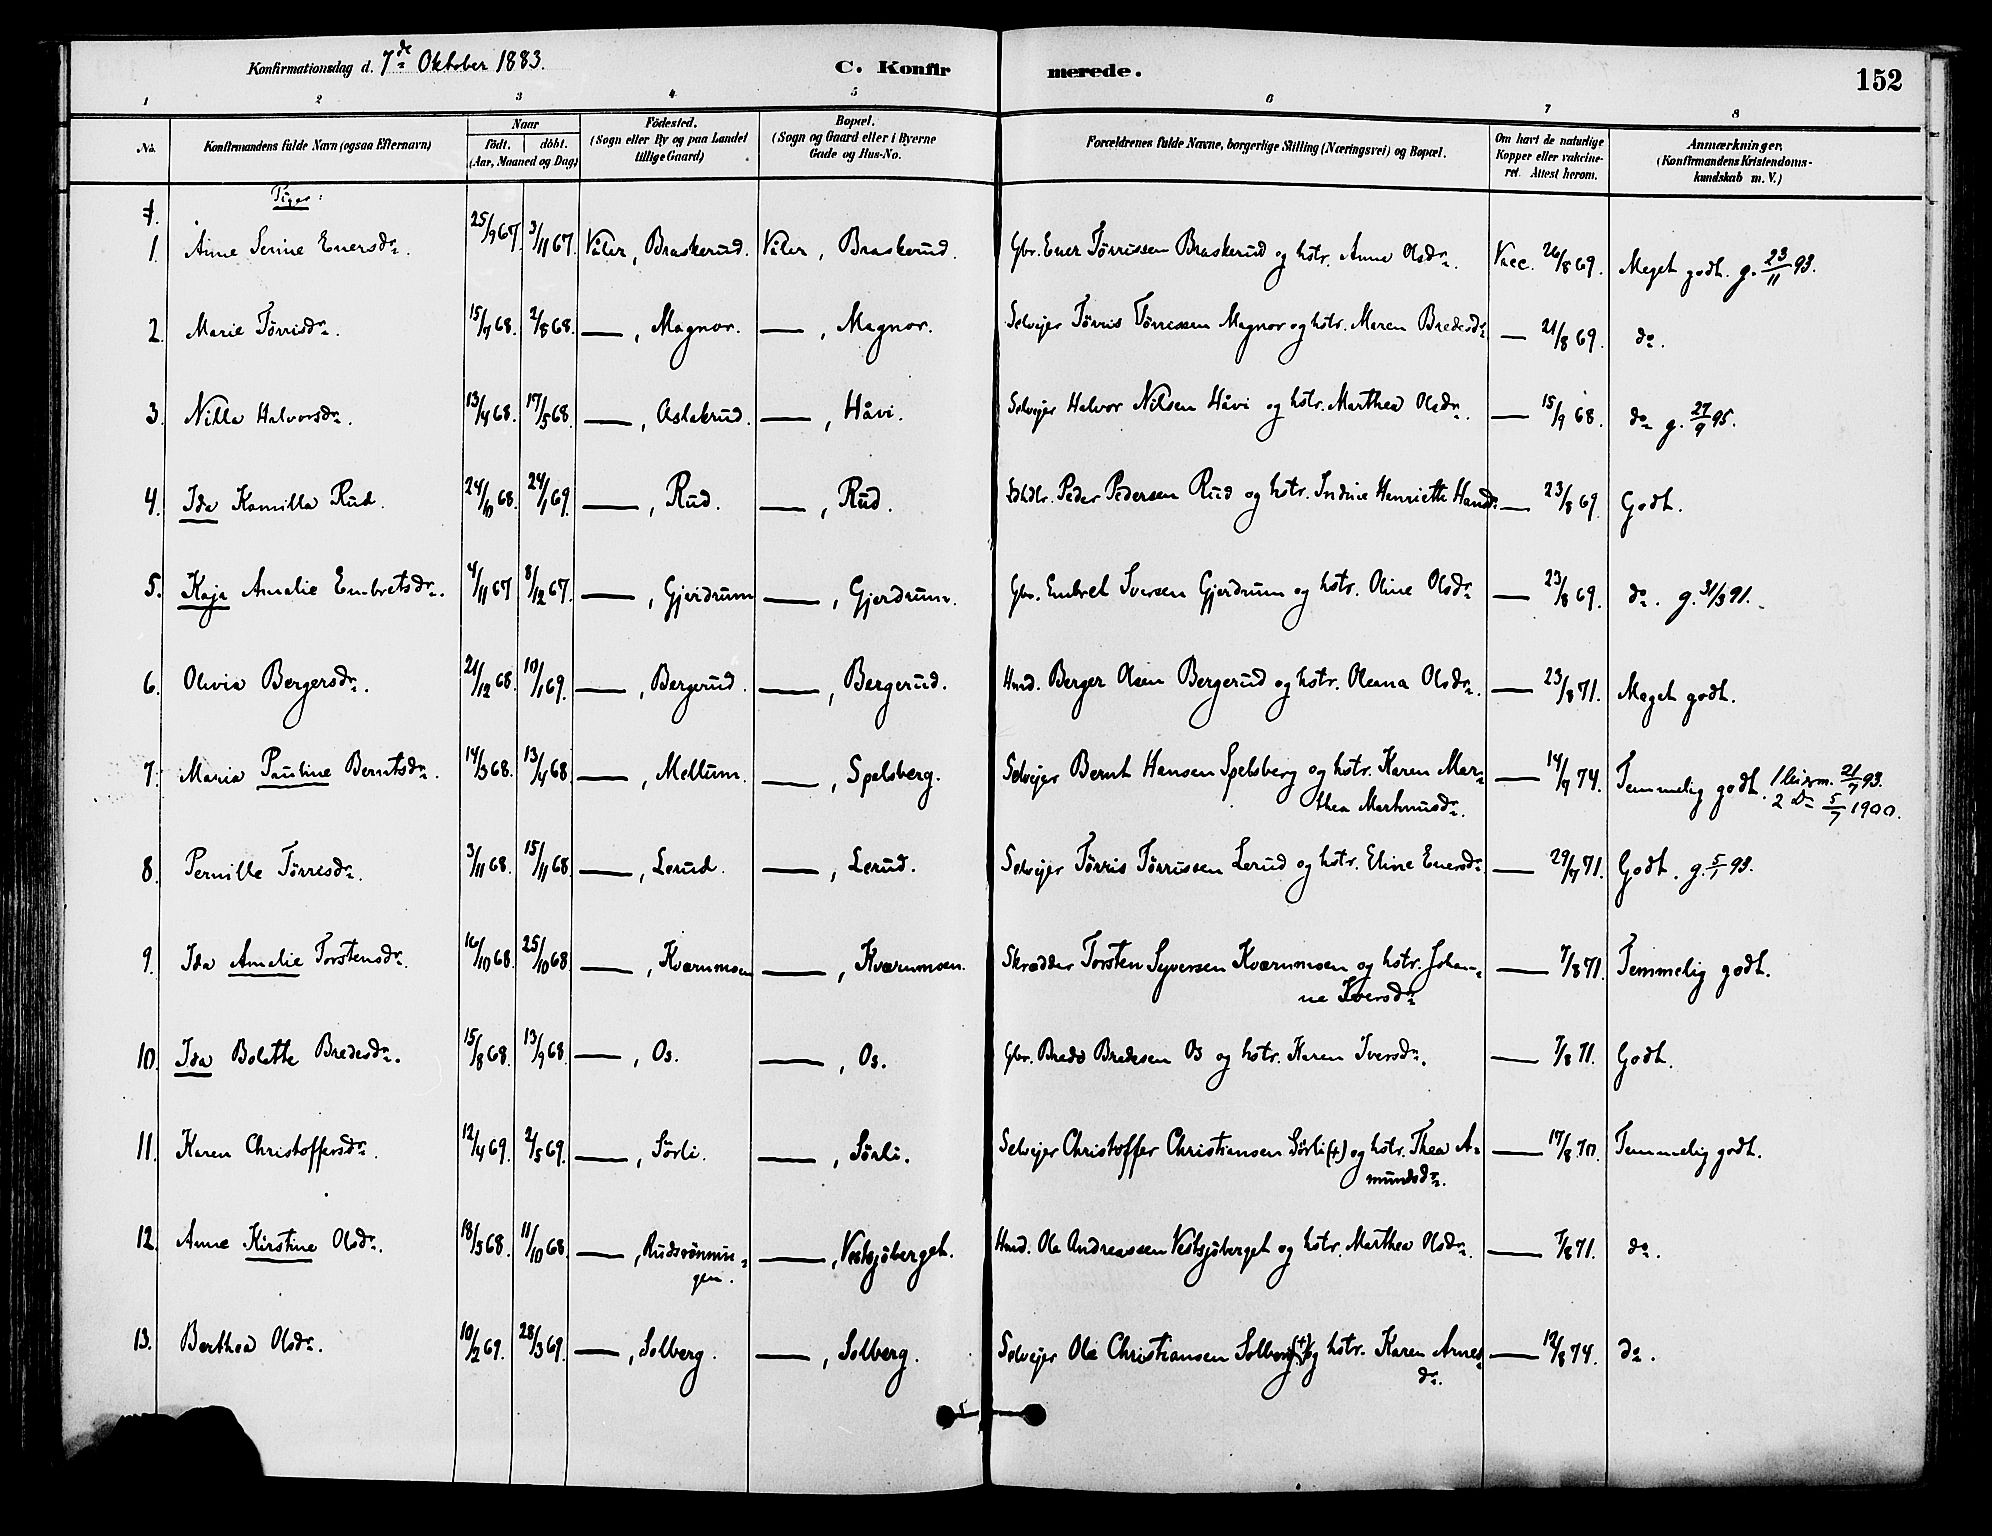 Konfirmationsdag d. 7de Oktober 1883. C. Konfirmerede. 152
1 2 3 4 5 6 7 8
No. Konfirmandens fulde Navn (ogsaa Efternavn) Naar födt. döbt. (Aar, Maaned og Dag) Födested. (Sogn eller By og paa Landet tillige Gaard) Bopæl. (Sogn og Gaard eller i Byerne Gade og Hus-No. Forældrenes fulde Navne, borgerlige Stilling (Næringsvei) og Bopæl. Om havt de naturlige Kopper eller vakcineret. Attest herom. Anmærkninger. (Konfirmandens Kristendomskundskab m. V.)
Piger:
1. Anne Serine Enersdr. 25/9 67. 3/11 67. Våler, Braskerud. Våler, Braskerud. Gbr. Ener Tørrissen Braskerud og hstr. Anne Olsdr. Vacc. 26/8 69. Meget godt. g. 23/11 93.
2. Marie Tørrisdr. 15/7 68. 2/8 68. —, Magnor. —, Magnor. Selvejer Tørris Tørrissen Magnor og hstr. Maren Bredesdr. — 21/8 69. do.
3. Nikla Halvorsdr. 13/4 68. 17/5 68. —, Aslakrud. —, Håvi. Selvejer Halvor Nilsen Håvi og hstr. Marthea Olsdr. — 15/9 68. do g. 27/9 95.
4. Ida Kamilla Rud. 24/10 68. 24/1 69. —, Rud. —, Rud. Peder Pedersen Rud og hstr. Indine Henriette Hansdr. — 23/8 69. Godt.
5. Kaja Amalie Embretsdr. 4/11 67 8/12 67. —, Gjerdrum —, Gjerdrum. Gbr. Embret Iversen Gjerdrum og hstr. Oline Olsdr. — 23/8 69. do. g. 31/3 91.
6. Olivia Bergersdr. 21/12 68. 10/1 69. —, Bergerud. —, Bergerud. Hmd. Berger Olsen Bergerud og hstr. Oleana Olsdr. — 23/8 71. Meget godt.
7. Maria Pauline Berntsdr. 14/3 68. 13/4 68. —, Mellum. —, Spelsberg. Selvejer Bernt Hansen Spelsberg og hstr. Karen Mar- — 14/9 74. Temmelig godt. 1 leierm. 21/7 93.
thea Martinusdr. 2 do 5/7 1900.
8. Pernille Tørresdr. 3/11 68. 15/11 68. —, Lerud. —, Lerud. Selvejer Tørris Tørrissen Lerud og hstr. Eline Enersdr. — 29/7 71. Godt. g. 5/1 93.
9. Ida Amalie Torstensdr. 16/10 68. 25/10 68. —, Kværnmoen —, Kværnmoen. Skrædder Torsten Syversen Kværnmoen og hstr. Johan- — 7/8 71. Temmelig godt.
ne Iversdr.
10. Ida Bolette Bredesdr. 15/8 68. 13/9 68. —, Os. —, Os. Gbr. Brede Bredesen Os og hstr. Karen Iversdr. — 7/8 71. Godt.
11. Karen Christoffersdr. 12/4 69. 2/5 69. —, Sörli. —, Sörli. Selvejer Christoffer Christiansen Sörli (+) og hstr. Thea A- — 17/8 70. Temmelig godt.
mundsdr.
12. Anne Kirstine Olsdr. 18/3 68. 11/10 68. —, Rudsrönnin- —, Vestsjöberget. Hmd. Ole Andreassen Vestsjöberget og hstr. Marthea Olsdr. — 7/8 71. do.
gen.
13. Berthea Olsdr. 10/2 69. 28/3 69. —, Solberg. —, Solberg. Selvejer Ole Christiansen Solberg (+) og hstr. Karen Arnes- — 12/8 74. do.
dr.